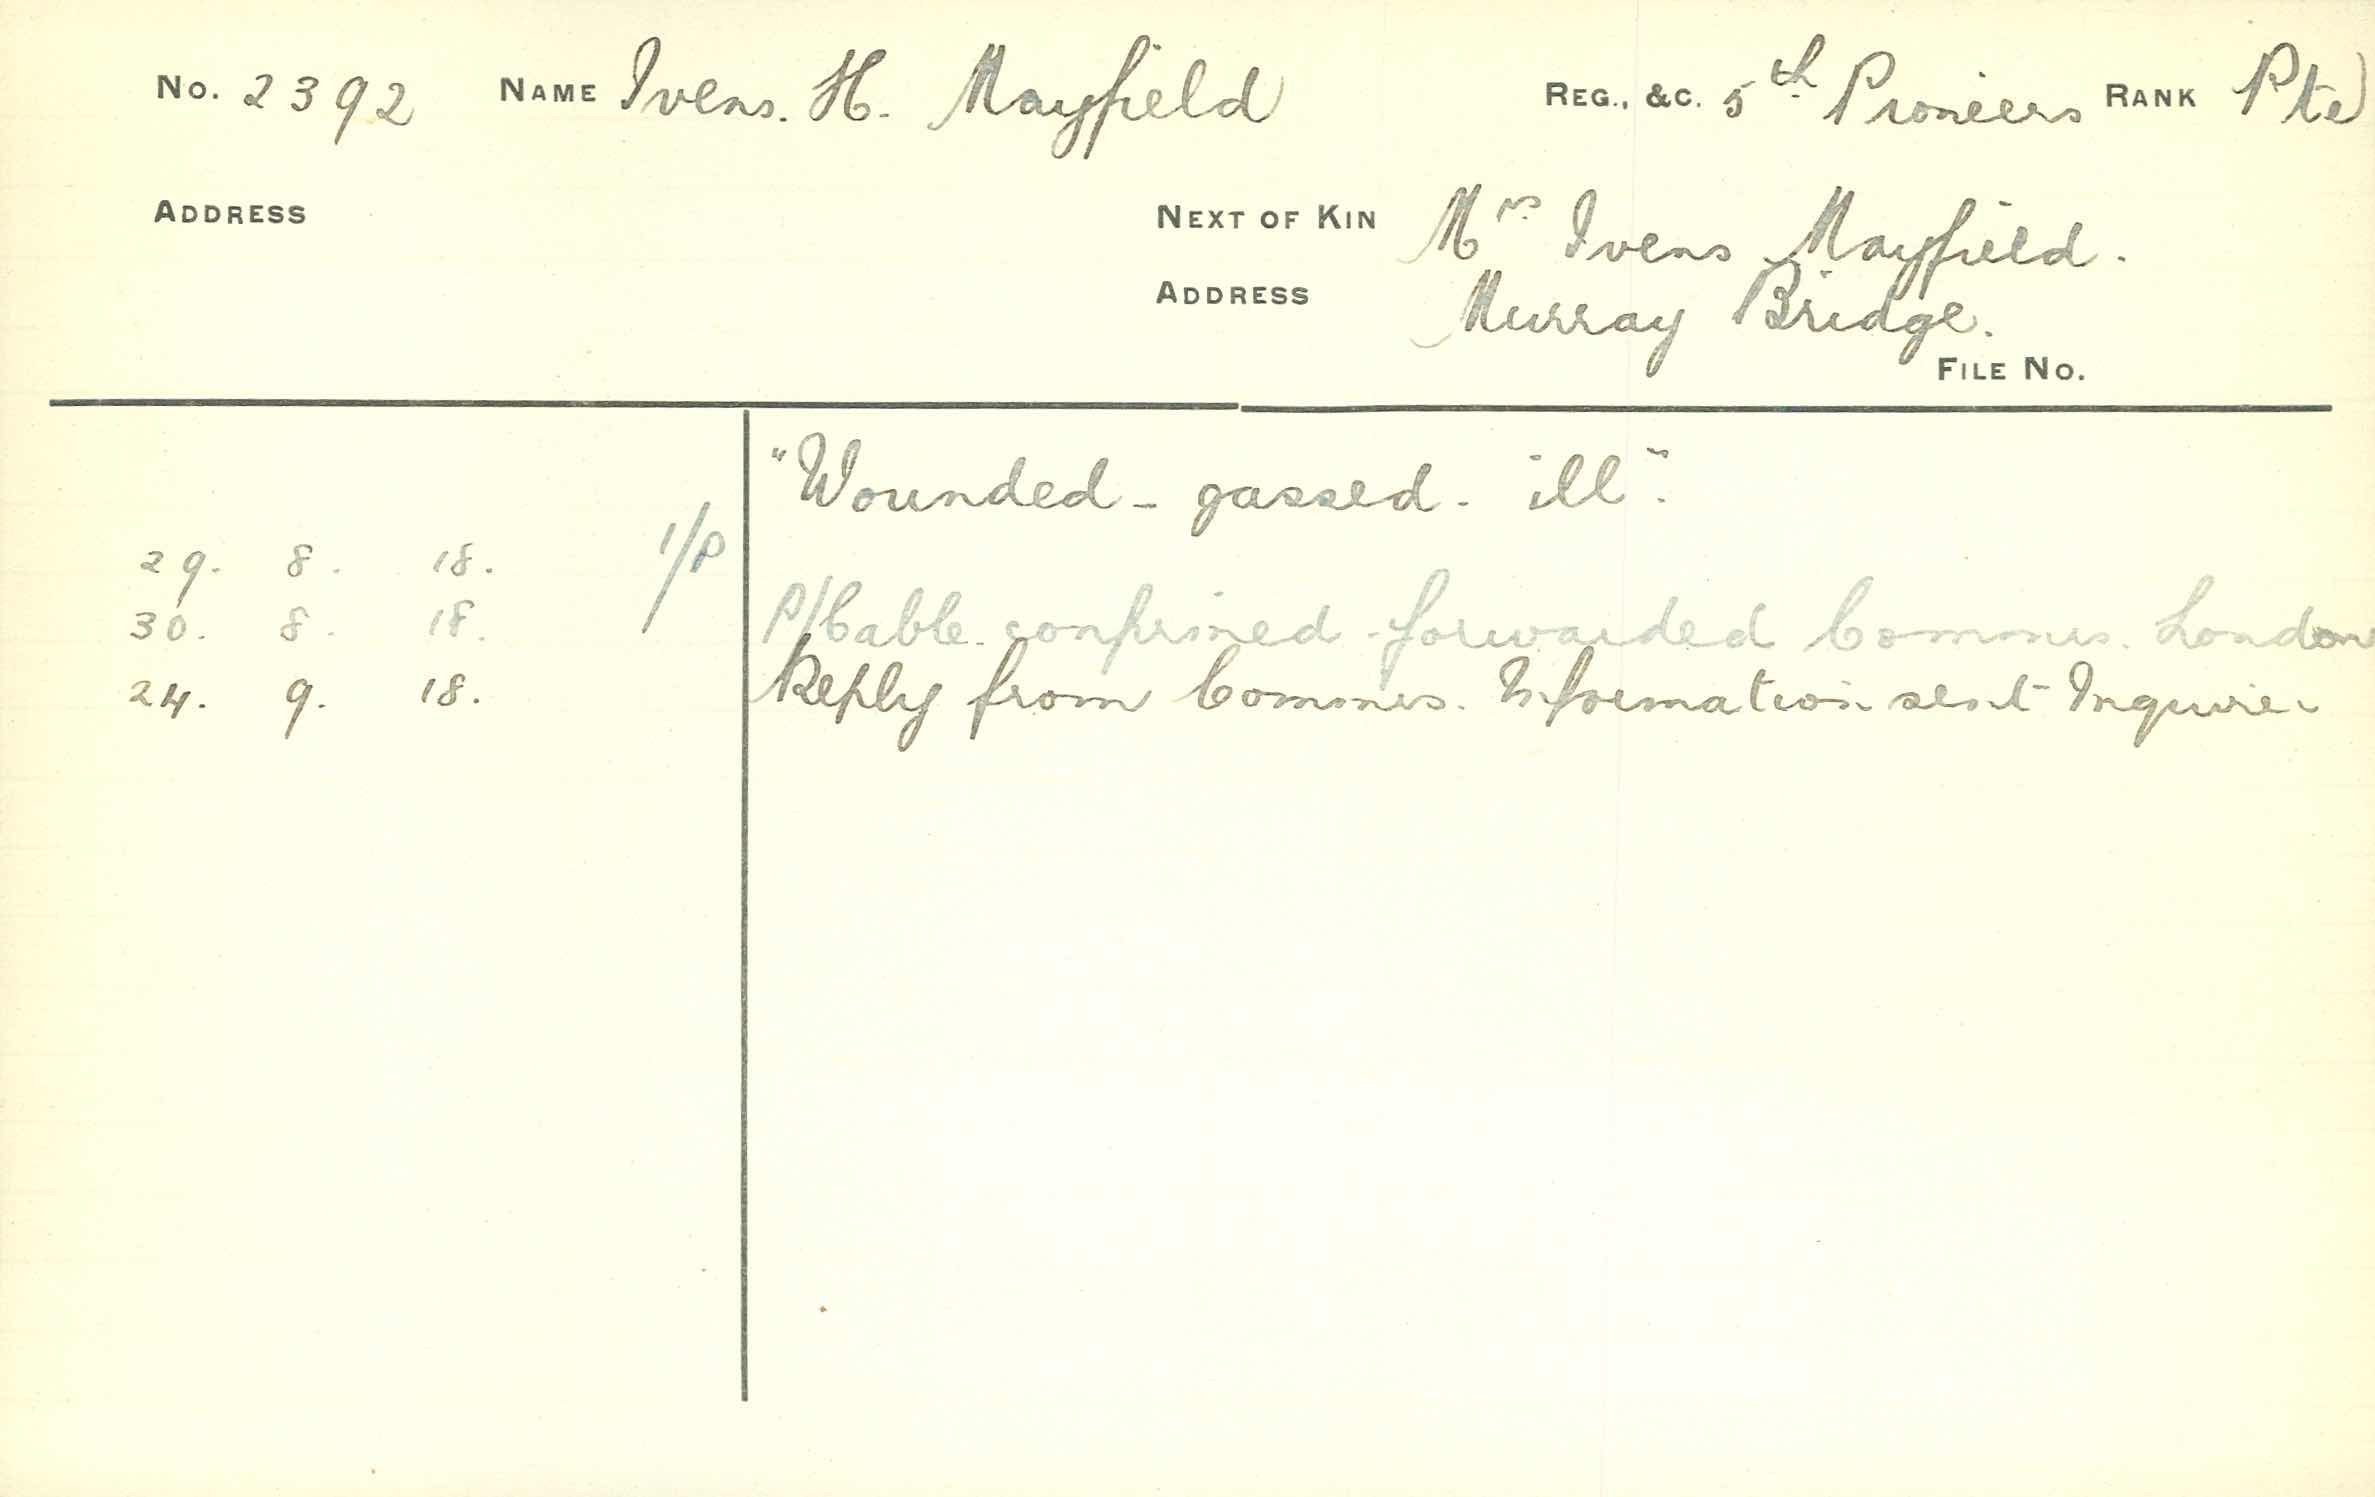 No. 2392 NAME Ivens. H. Mayfield REG., &C. 5th Pioneers RANK Pte
ADDRESS NEXT OF KIN Mrs Ivens Mayfield.
ADDRESS Murray Bridge.
FILE No.
"Wounded - gassed - ill".
29. 8. 18. 1/P
30. 8. 18. P/Cable confirmed - forwarded Commis. London
24. 9. 18. Reply from Commis. Information sent Inquirer